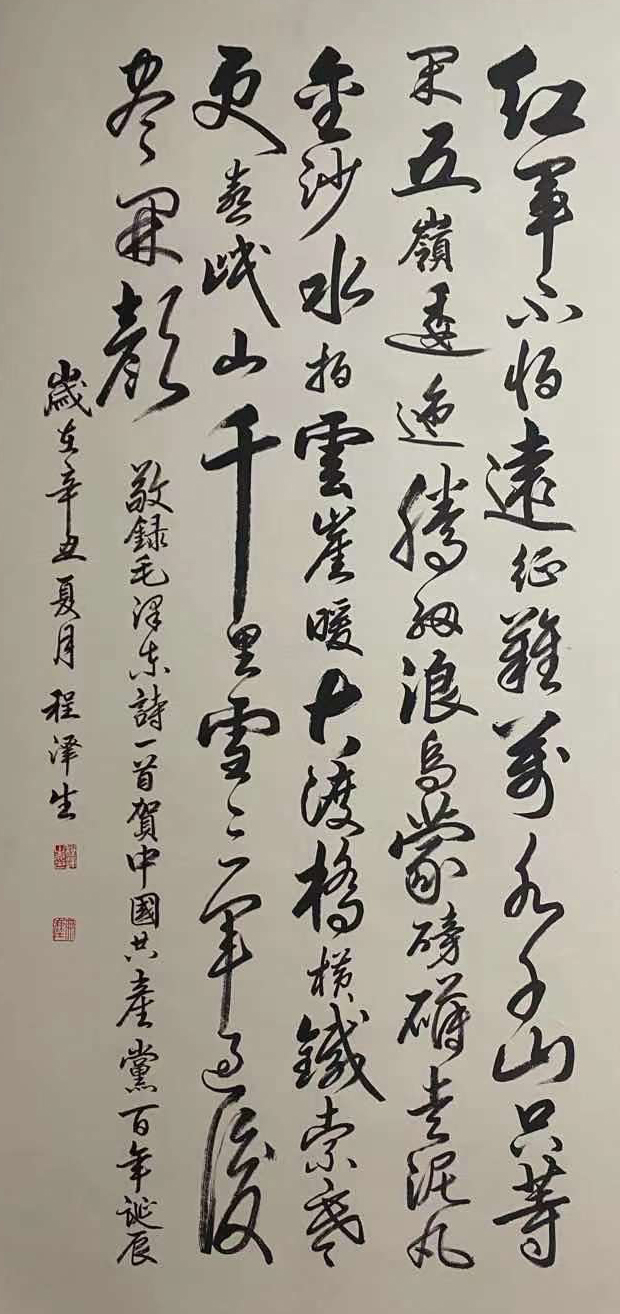 红軍不怕遠征難萬水千山只等
閑五嶺逶迤腾细浪烏蒙磅礴走泥丸
金沙水拍雲崖暖大渡橋横鐵索寒
更喜岷山千里雪三軍過後
尽開颜
敬録毛泽东詩一首賀中國共產黨百年誕辰
歲在辛丑夏月程泽生